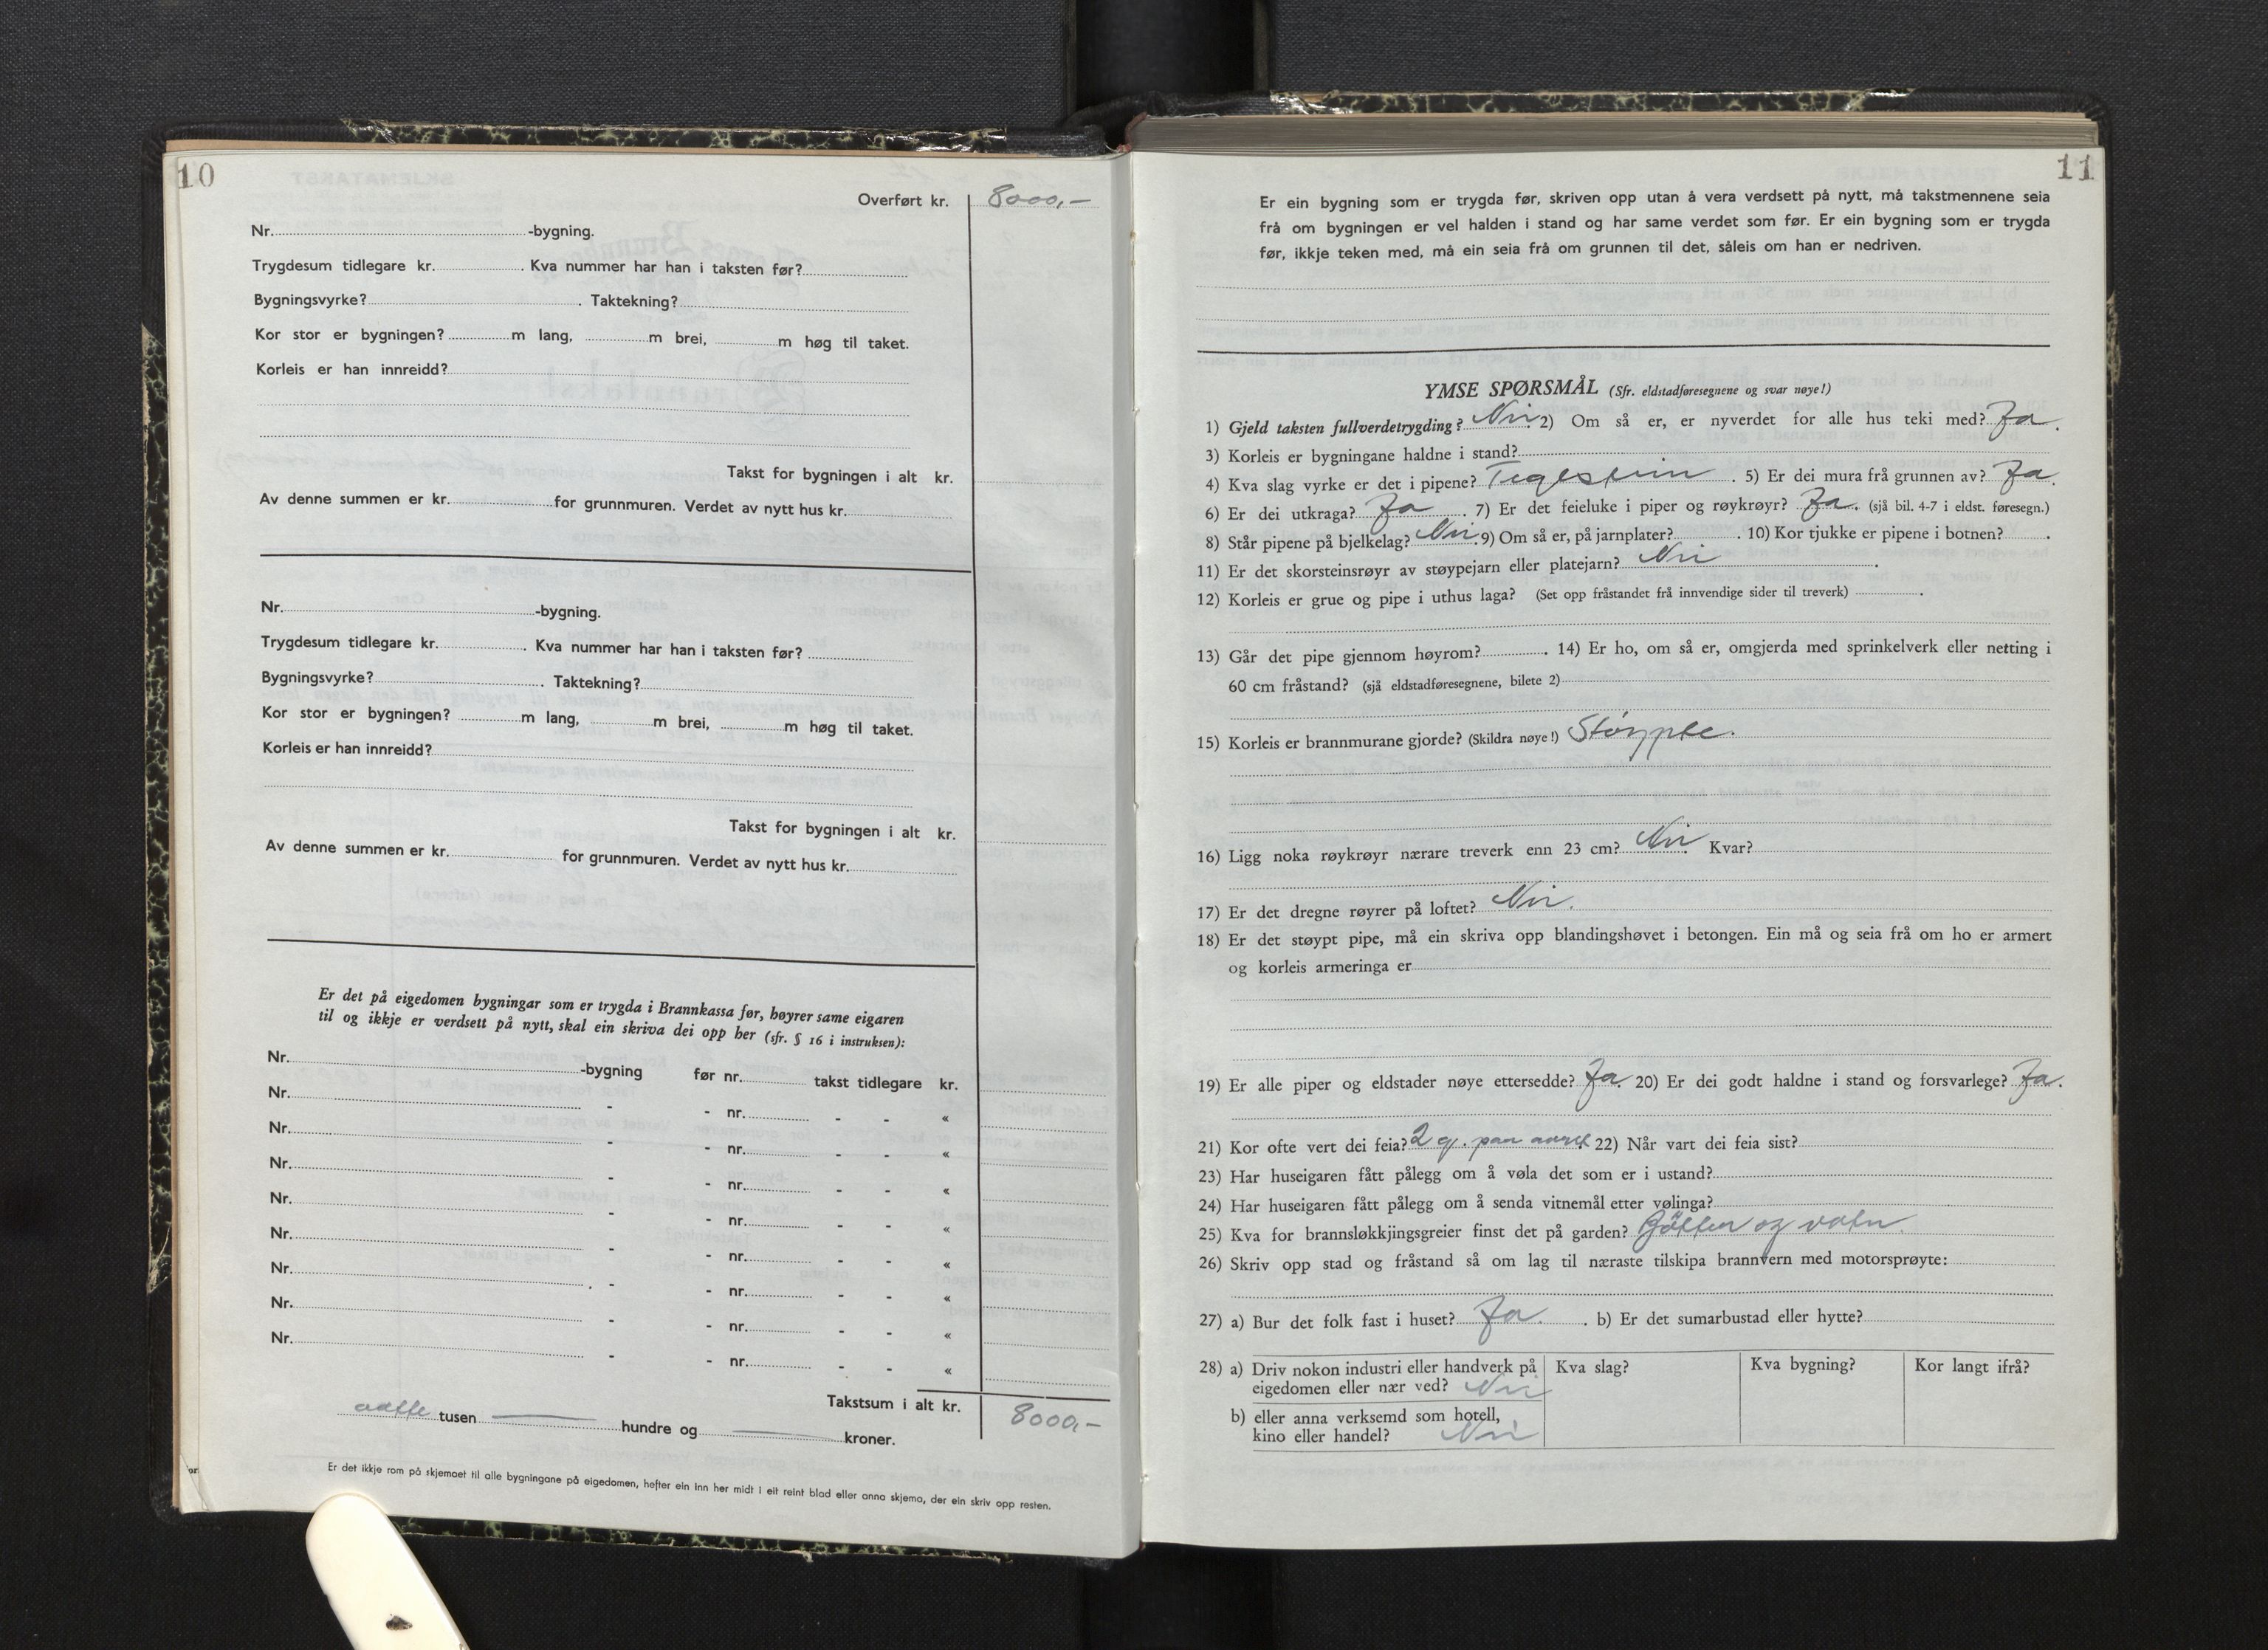 10
Overført kr. 8000,-
Nr. -bygning.
Trygdesum tidlegare kr. . Kva nummer har han i taksten før?
Bygningsvyrke? . Taktekning?
Kor stor er bygningen? m lang, m brei, m høg til taket.
Korleis er han innreidd?
Takst for bygningen i alt kr.
Av denne summen er kr. for grunnmuren. Verdet av nytt hus kr.
Nr. -bygning.
Trygdesum tidlegare kr. . Kva nummer har han i taksten før?
Bygningsvyrke? . Taktekning?
Kor stor er bygningen? m lang, m brei, m høg til taket.
Korleis er han innreidd?
Takst for bygningen i alt kr.
Av denne summen er kr. for grunnmuren. Verdet av nytt hus kr.
Er det på eigedomen bygningar som er trygda i Brannkassa før, høyrer same eigaren
til og ikkje er verdsett på nytt, skal ein skriva dei opp her (sfr. § 16 i instruksen):
Nr. -bygning før nr. takst tidlegare kr.
Nr. - - nr. - - «
Nr. - - nr. - - «
Nr. - - nr. - - «
Nr. - - nr. - - «
Nr. - - nr. - - «
Nr. - - nr. - - «
Nr. - - nr. - - «
Nr. - - nr. - - «
Takstsum i alt kr. 8000,-
aatte tusen — hundre og — kroner.
Er det ikkje rom på skjemaet til alle bygningane på eigedomen, hefter ein inn her midt i eit reint blad eller anna skjema, der ein skriv opp resten.
11
Er ein bygning som er trygda før, skriven opp utan å vera verdsett på nytt, må takstmennene seia
frå om bygningen er vel halden i stand og har same verdet som før. Er ein bygning som er trygda
før, ikkje teken med, må ein seia frå om grunnen til det, såleis om han er nedriven.
YMSE SPØRSMÅL (Sfr. eldstadføresegnene og svar nøye!)
1) Gjeld taksten fullverdetrygding? Nei. 2) Om så er, er nyverdet for alle hus teki med? Ja.
3) Korleis er bygningane haldne i stand?
4) Kva slag vyrke er det i pipene? Teglstein . 5) Er dei mura frå grunnen av? Ja.
6) Er dei utkraga? Ja . 7) Er det feieluke i piper og røykrøyr? Ja. (sjå bil. 4-7 i eldst. føresegn.)
8) Står pipene på bjelkelag? Nei. 9) Om så er, på jarnplater? . 10) Kor tjukke er pipene i botnen? .
11) Er det skorsteinsrøyr av støypejarn eller platejarn? Nei .
12) Korleis er grue og pipe i uthus laga? (Set opp fråstandet frå innvendige sider til treverk) .
13) Går det pipe gjennom høyrom? . 14) Er ho, om så er, omgjerda med sprinkelverk eller netting i
60 cm fråstand? (sjå eldstadføresegnene, bilete 2)
15) Korleis er brannmurane gjorde? (Skildra nøye!) Støypte.
16) Ligg noka røykrøyr nærare treverk enn 23 cm? Nei. Kvar?
17) Er det dregne røyrer på loftet? Nei.
18) Er det støypt pipe, må ein skriva opp blandingshøvet i betongen. Ein må og seia frå om ho er armert
og korleis armeringa er
19) Er alle piper og eldstader nøye ettersedde? Ja 20) Er dei godt haldne i stand og forsvarlege? Ja.
21) Kor ofte vert dei feia? 2 g. paa aaret 22) Når vart dei feia sist?
23) Har huseigaren fått pålegg om å vøla det som er i ustand?
24) Har huseigaren fått pålegg om å senda vitnemål etter vølinga?
25) Kva for brannsløkkjingsgreier finst det på garden? Bøtter og vatn.
26) Skriv opp stad og fråstand så om lag til næraste tilskipa brannvern med motorsprøyte:
27) a) Bur det folk fast i huset? Ja. . b) Er det sumarbustad eller hytte?
28) a) Driv nokon industri eller handverk på Kva slag? Kva bygning? Kor langt ifrå?
eigedomen eller nær ved? Nei
b) eller anna verksemd som hotell,
kino eller handel? Nei